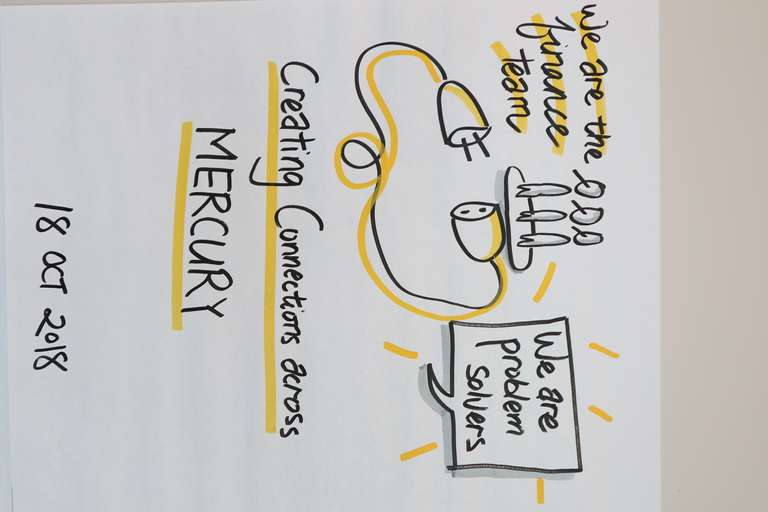 We are the
finance
team
We are
problem
solvers
Creating Connections across
MERCURY
18 OCT 2018